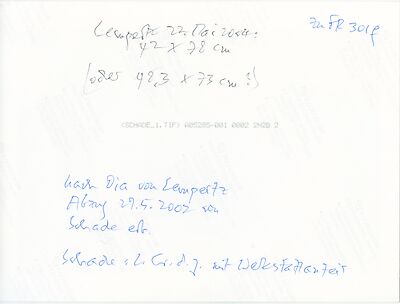 zu FR 301g
Lempertz 22. Mai 2001:
42 x 78 cm
(oder 42,3 x 73 cm!)
<SCHADE_1.TIF> A05205-001 0002 2N2D 2
nach Dia von Lempertz
Abzug 29.5.2002 von
Schade erb.
Schade: L. Cr. d. J. mit Werkstattanteil